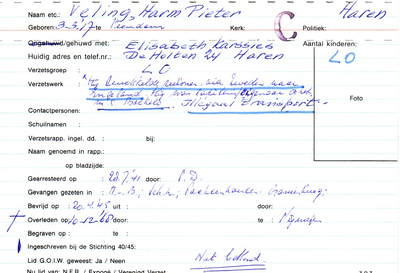 Naam etc.: Veling, Harm Pieter Haren
Geboren: 3-3-'17 te Veendam Kerk: C Politiek:
Ongehuwd/gehuwd met: Elisabeth Karssies Aantal kinderen:
Huidig adres en telef.nr.: De Holten 24 Haren LO
Verzetsgroep : LO
Verzetswerk : Hij via Zweden naar
Engeland. Hij was
Illegaal transport.
Contactpersonen:
Foto
Schuilnaam :
Verzetsrapp. ingel. dd. : bij:
Naam genoemd in rapp.:
op bladzijde:
Gearresteerd op : 28.7.'41 door: S.D.
Gevangen gezeten in : Oranienburg;
Bevrijd op : 20.4.'45 uit : door:
Overleden op : 10-12-'60 door: te : Nijmegen
Begraven op : te :
Ingeschreven bij de Stichting 40/45:
Lid G.O.I.W. geweest: Ja / Neen Niet bekend.
Nu lid van: N.F.R. / Exposé / Verenigd Verzet